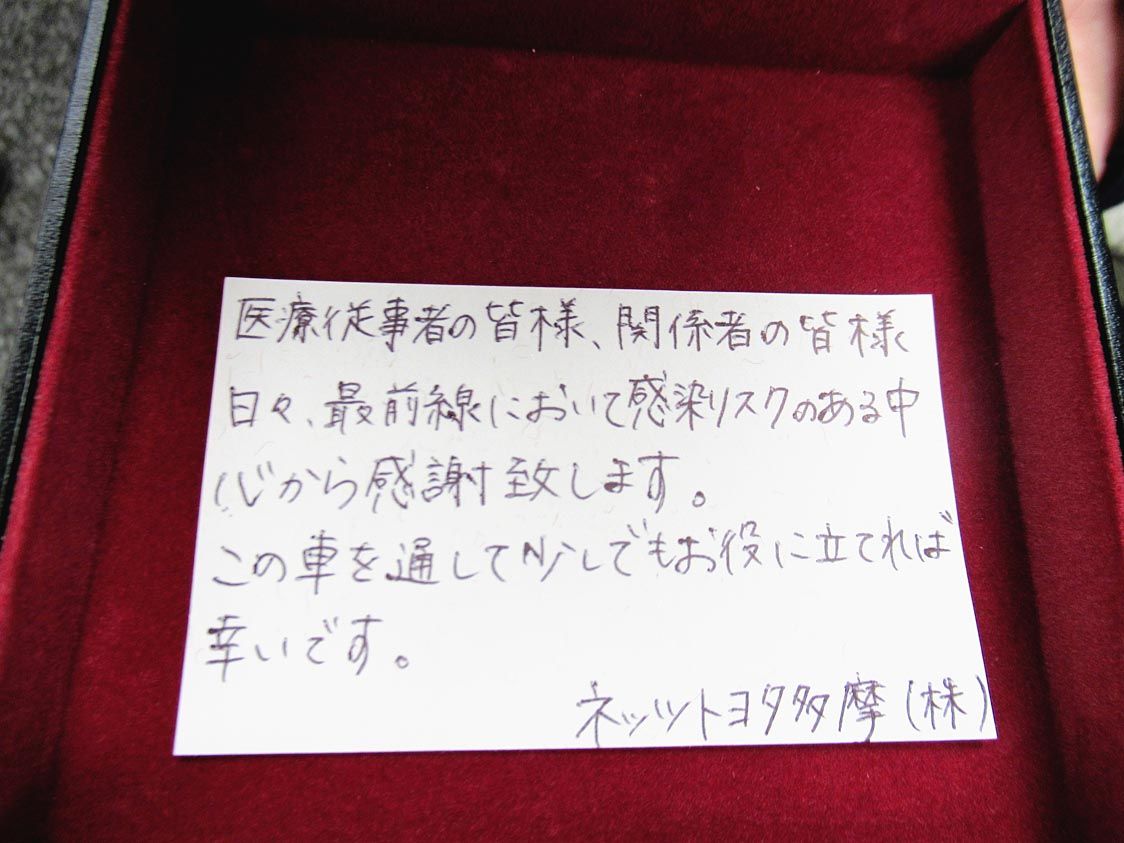 医療従事者の皆様、関係者の皆様
日々、最前線において感染リスクのある中
心から感謝致します。
この車を通して少しでもお役に立てれば
幸いです。
ネッツトヨタ多摩(株)